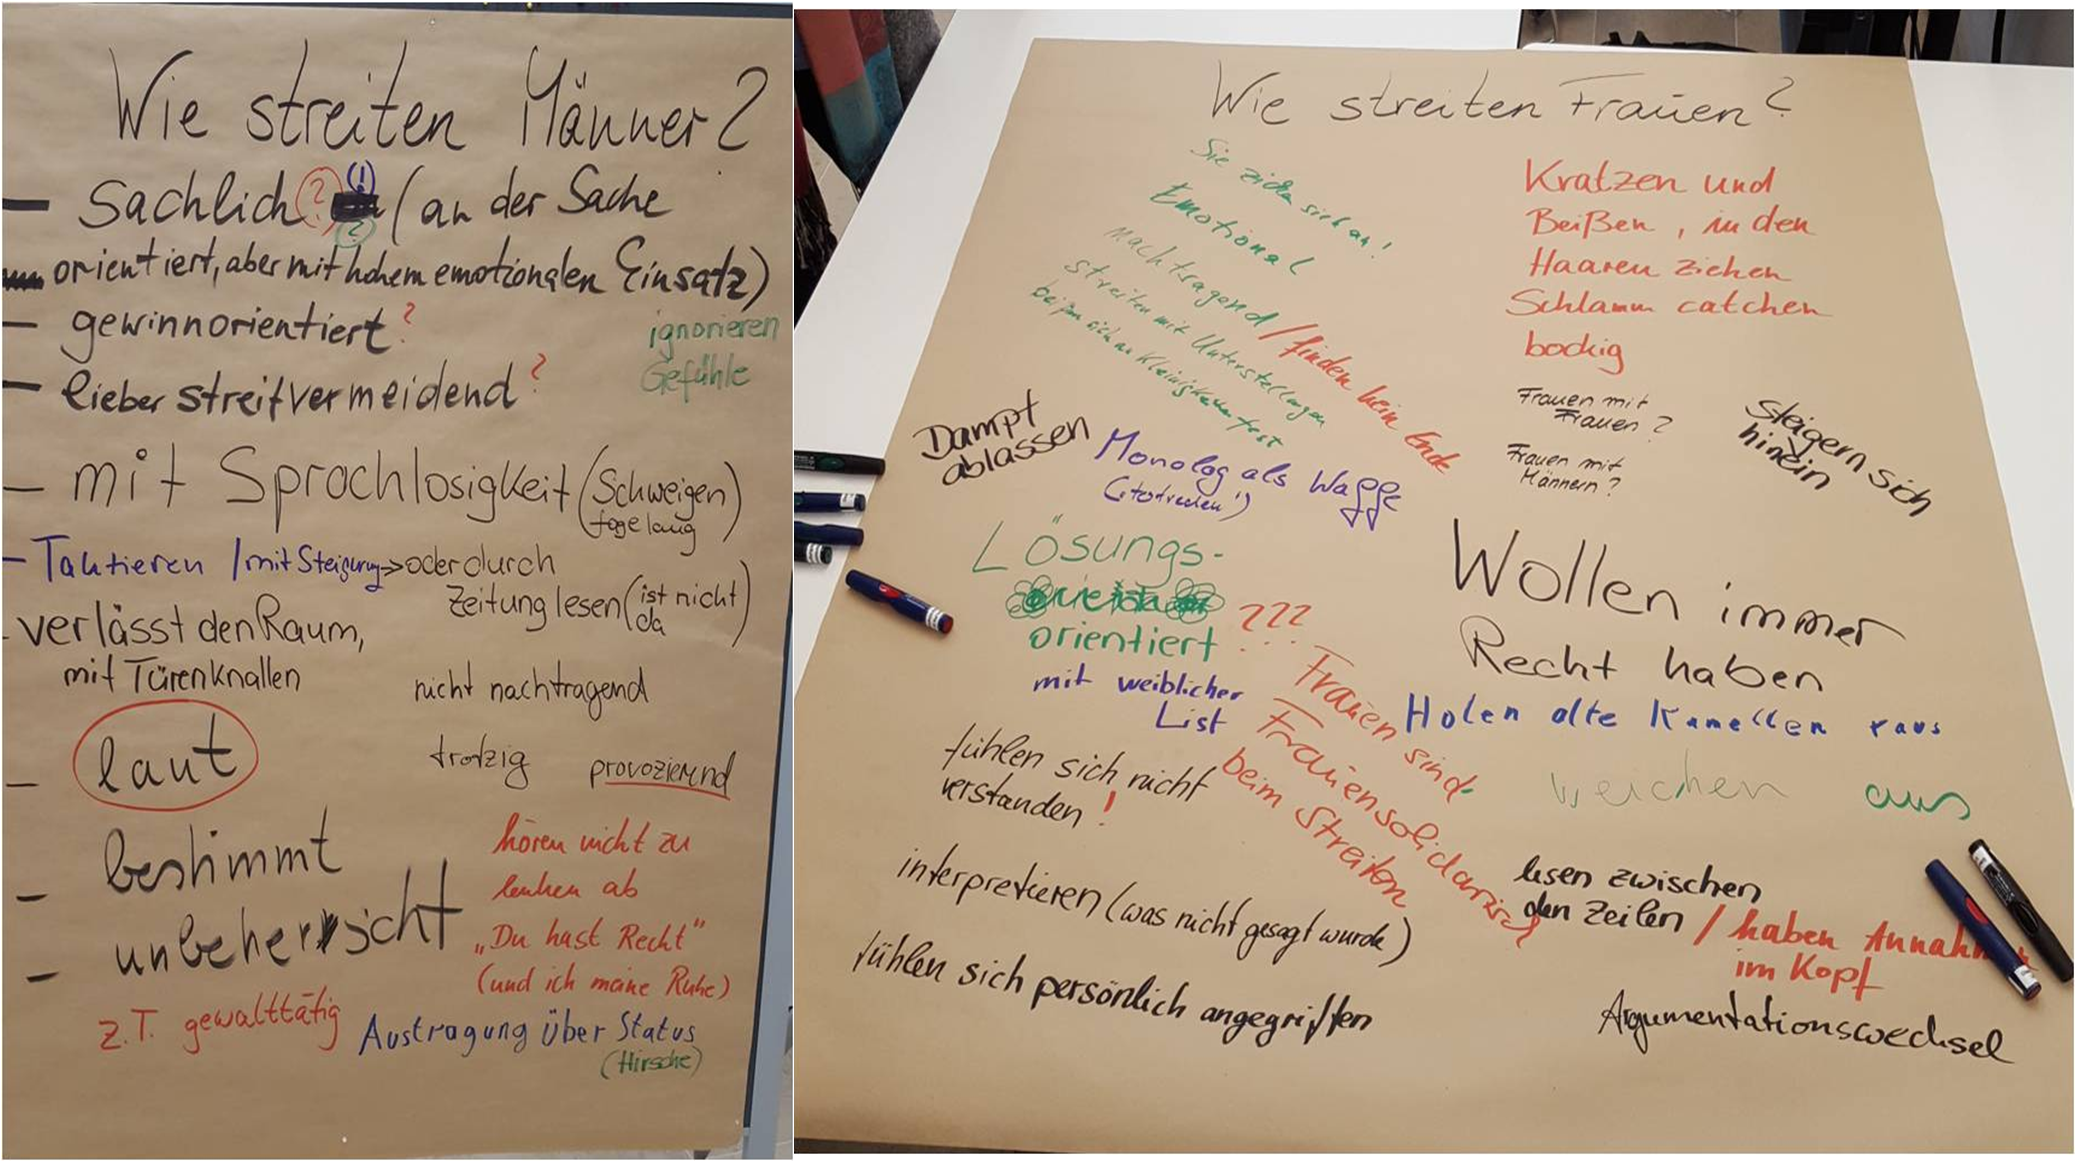 Wie streiten Männer?
– Sachlich ? (!) (an der Sache
?
orientiert, aber mit hohem emotionalen Einsatz)
– gewinnorientiert ?
ignorieren
Gefühle
– lieber streitvermeidend ?
– mit Sprachlosigkeit (Schweigen)
tagelang
– Taktieren / mit Steigerung -> oder durch
Zeitung lesen (ist nicht
da)
- verlässt den Raum,
mit Türenknallen
nicht nachtragend
– laut
trotzig provozierend
– bestimmt
– unbeherrscht
hören nicht zu
lenken ab
„Du hast Recht"
(und ich meine Ruhe)
z.T. gewalttätig
Austragung über Status
(Hirsche)
Wie streiten Frauen?
Sie zicken sich an!
Emotional
nachtragend / finden kein Ende
streiten mit Unterstellungen
beißen sich an Kleinigkeiten fest
Kratzen und
Beißen, in den
Haaren ziehen
Schlamm catchen
bockig
Frauen mit
Frauen?
Frauen mit
Männern?
Steigern sich
hinein
Dampf
ablassen
Monolog als Waffe
Lösungs-
orientiert ???
mit weiblicher
List
Wollen immer
Recht haben
Holen alte Kamellen raus
Frauen sind
Frauensolidarisch
beim Streiten
weichen aus
fühlen sich nicht
verstanden!
interpretieren (was nicht gesagt wurde)
fühlen sich persönlich angegriffen
lesen zwischen
den Zeilen / haben
im Kopf
Argumentationswechsel